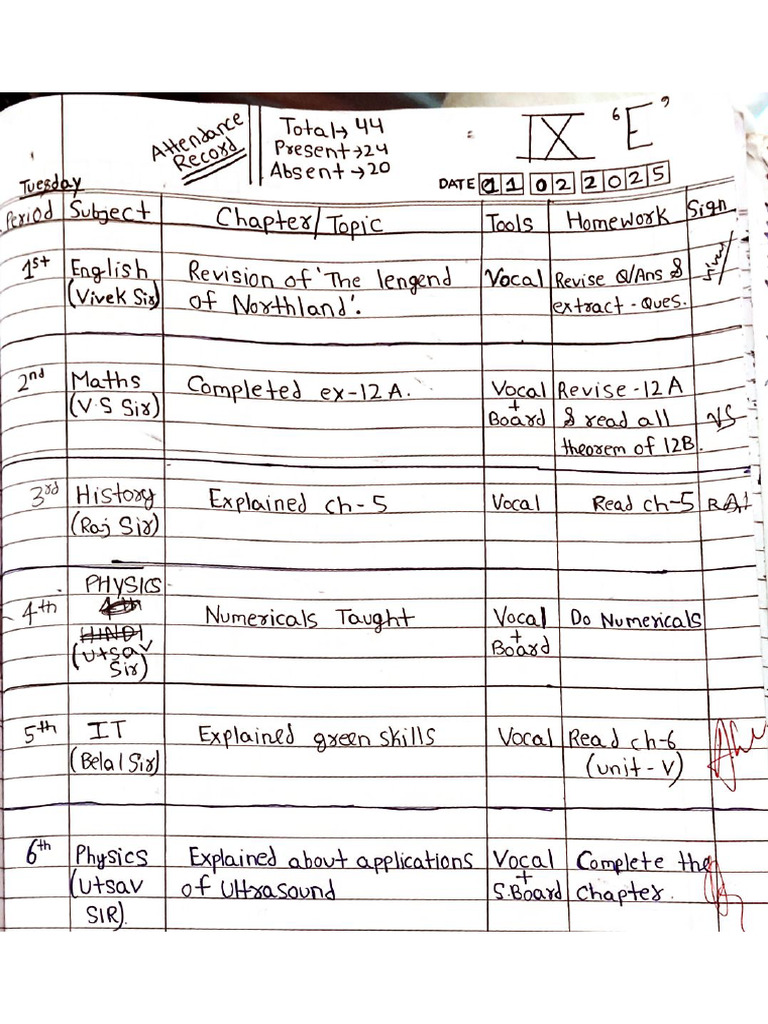 Attendance Record
Total→ 44
Present→24
Absent→20
IX 'E'
Tuesday
DATE 11 02 2025
Period Subject Chapter/Topic Tools Homework Sign
1st English (Vivek Sir) Revision of 'The lengend of Northland'. Vocal Revise Q/Ans & extract-Ques.
2nd Maths (V.S Sir) Completed ex-12A. Vocal + Board Revise-12A & read all theorem of 12B. VS
3rd History (Raj Sir) Explained ch-5 Vocal Read ch-5 RAJ
4th PHYSICS (Utsav Sir) Numericals Taught Vocal + Board Do Numericals
5th IT (Belal Sir) Explained green skills Vocal Read ch-6 (unit-V)
6th Physics (Utsav SIR). Explained about applications of Ultrasound Vocal + S.Board Complete the chapter.